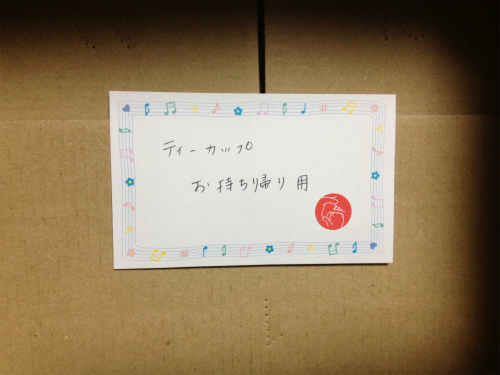 ティーカップ
お持ち帰り用